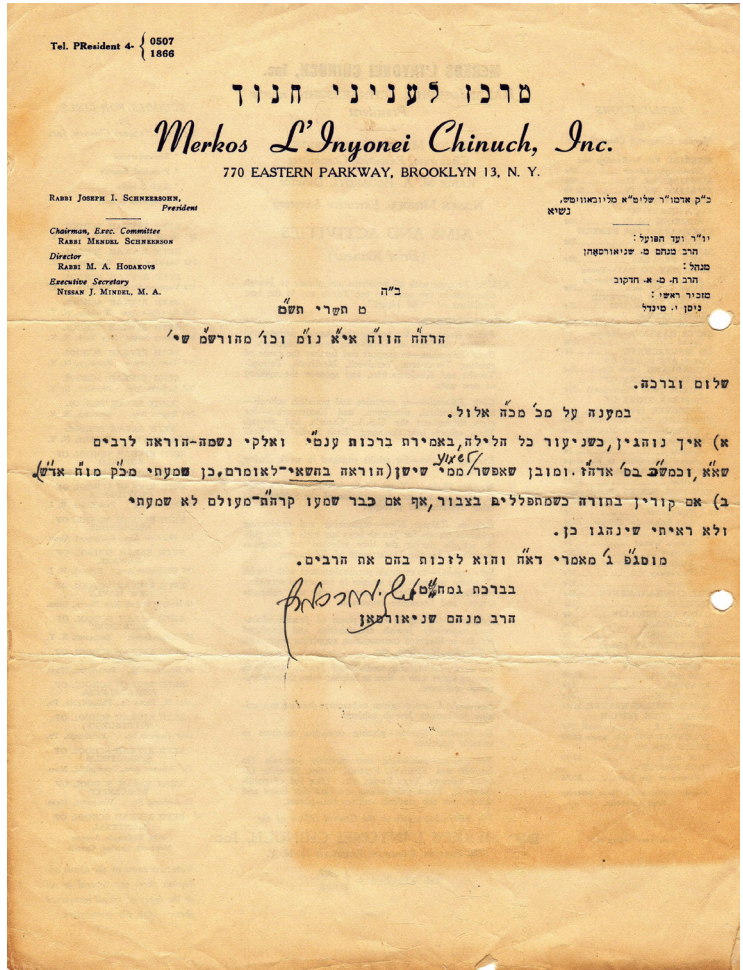 Tel. PResident 4- { 0507
1866
מרכז לעניני חנוך
Merkos L'Inyonei Chinuch, Inc.
770 EASTERN PARKWAY, BROOKLYN 13, N. Y.
RABBI JOSEPH I. SCHNEERSOHN,
President
Chairman, Exec. Committee
RABBI MENDEL SCHNEERSON
Director
RABBI M. A. HODAKOVS
Executive Secretary
NISSAN J. MINDEL, M. A.
כ"ק אדמו"ר שליט"א מליובאוויטש,
נשיא
יו"ר ועד הפועל:
הרב מנחם מ. שניאורסאהן
מנהל:
הרב ח. מ. א. חדקוב
מזכיר ראשי:
ניסן י. מינדל
ב"ה
ט תשרי תש"ט
הרה"ח הוו"ח אי"א נו"מ וכו' מהורש"מ שי'
שלום וברכה.
במענה על מכ' מכ"ה אלול.
א) איך נוהגין, כשניעור כל הלילה, באמירת ברכות ענט"י ואלקי נשמה-הוראה לרבים
שא"א, וכמש"כ בס' אדה"ז. ומובן שאפשר לשמוע ממי שישן (הוראה בחשאי-לאומרם, כן שמעתי מכ"ק מו"ח אדש").
ב) אם קורין בתורה כשמתפללים בצבור, אף אם כבר שמעו קרה"ת-מעולם לא שמעתי
ולא ראיתי שינהגו כן.
מוסג"פ ג' מאמרי דא"ח והוא לזכות בהם את הרבים.
בברכת גמח"ט,
הרב מנחם שניאורסאן